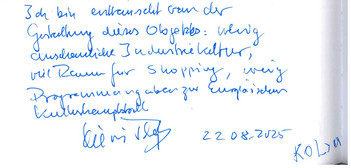 Ich bin enttäuscht von der
Gestaltung dieses Objektes: wenig
anschauliche Industriekultur,
viel Raum für Shopping, wenig
Programmangaben zur Europäischen
Kulturhauptstadt
22.08.2025